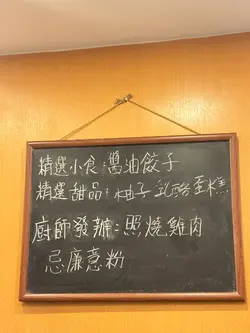 精選小食：醬油餃子
精選甜品：柚子乳酪蛋糕
廚師發辦：照燒雞肉
忌廉意粉